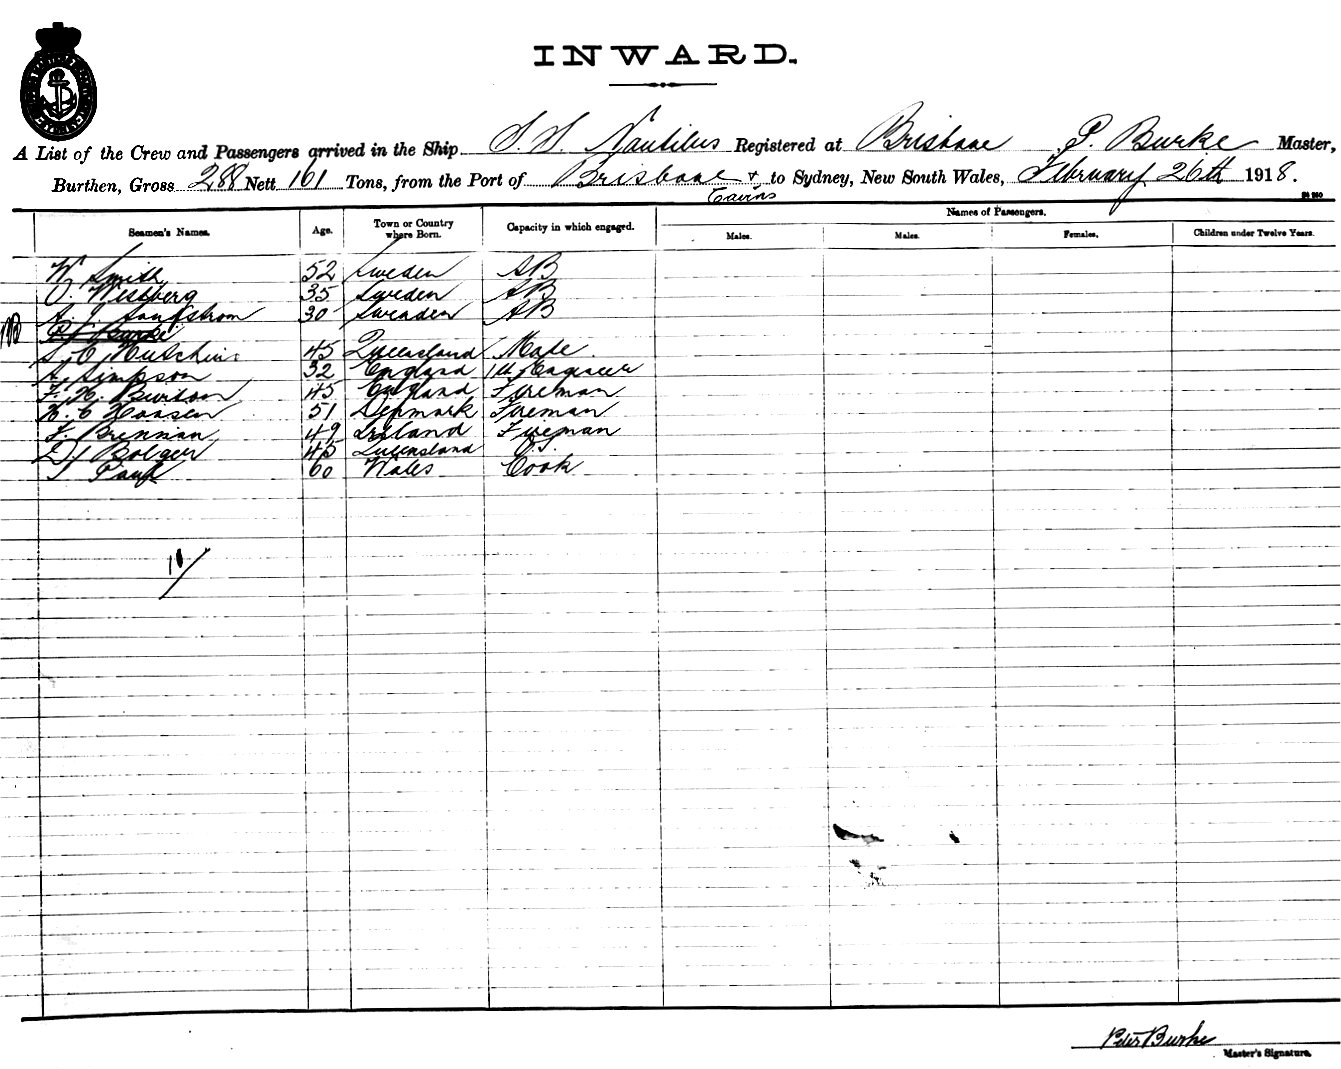 INWARD.
A List of the Crew and Passengers arrived in the Ship S. S. Nautilus Registered at Brisbane P. Burke Master,
Burthen, Gross 288 Nett 161 Tons, from the Port of Brisbane & Cairns to Sydney, New South Wales, February 26th 1918.
Seamen's Names. Age. Town or Country where Born. Capacity in which engaged. Names of Passengers.
Males. Males. Females. Children under Twelve Years.
W. Smith 52 Sweden AB
O. Westberg 35 Sweden AB
A. J. 30 Sweaden AB
P. Burke
S. C. Hutchins 45 Queensland Mate
A. Simpson 32 England Engineer
F. H. Burton 45 England Fireman
H. C. Hansen 51 Denmark Fireman
F. Brennan 49 Ireland Fireman
D. Bolger 45 Queensland
Paul 60 Wales Cook
Peter Burke
Master's Signature.